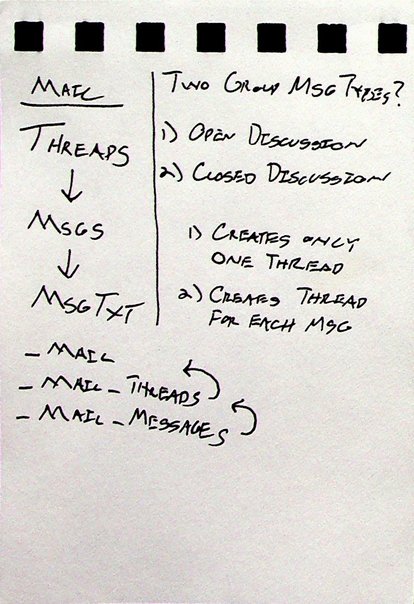 MAIL
THREADS
MSGS
MSGTXT
TWO GROUP MSG TYPES?
1) OPEN DISCUSSION
2) CLOSED DISCUSSION
1) CREATES ONLY
ONE THREAD
2) CREATES THREAD
FOR EACH MSG
- MAIL
- MAIL - THREADS
- MAIL - MESSAGES